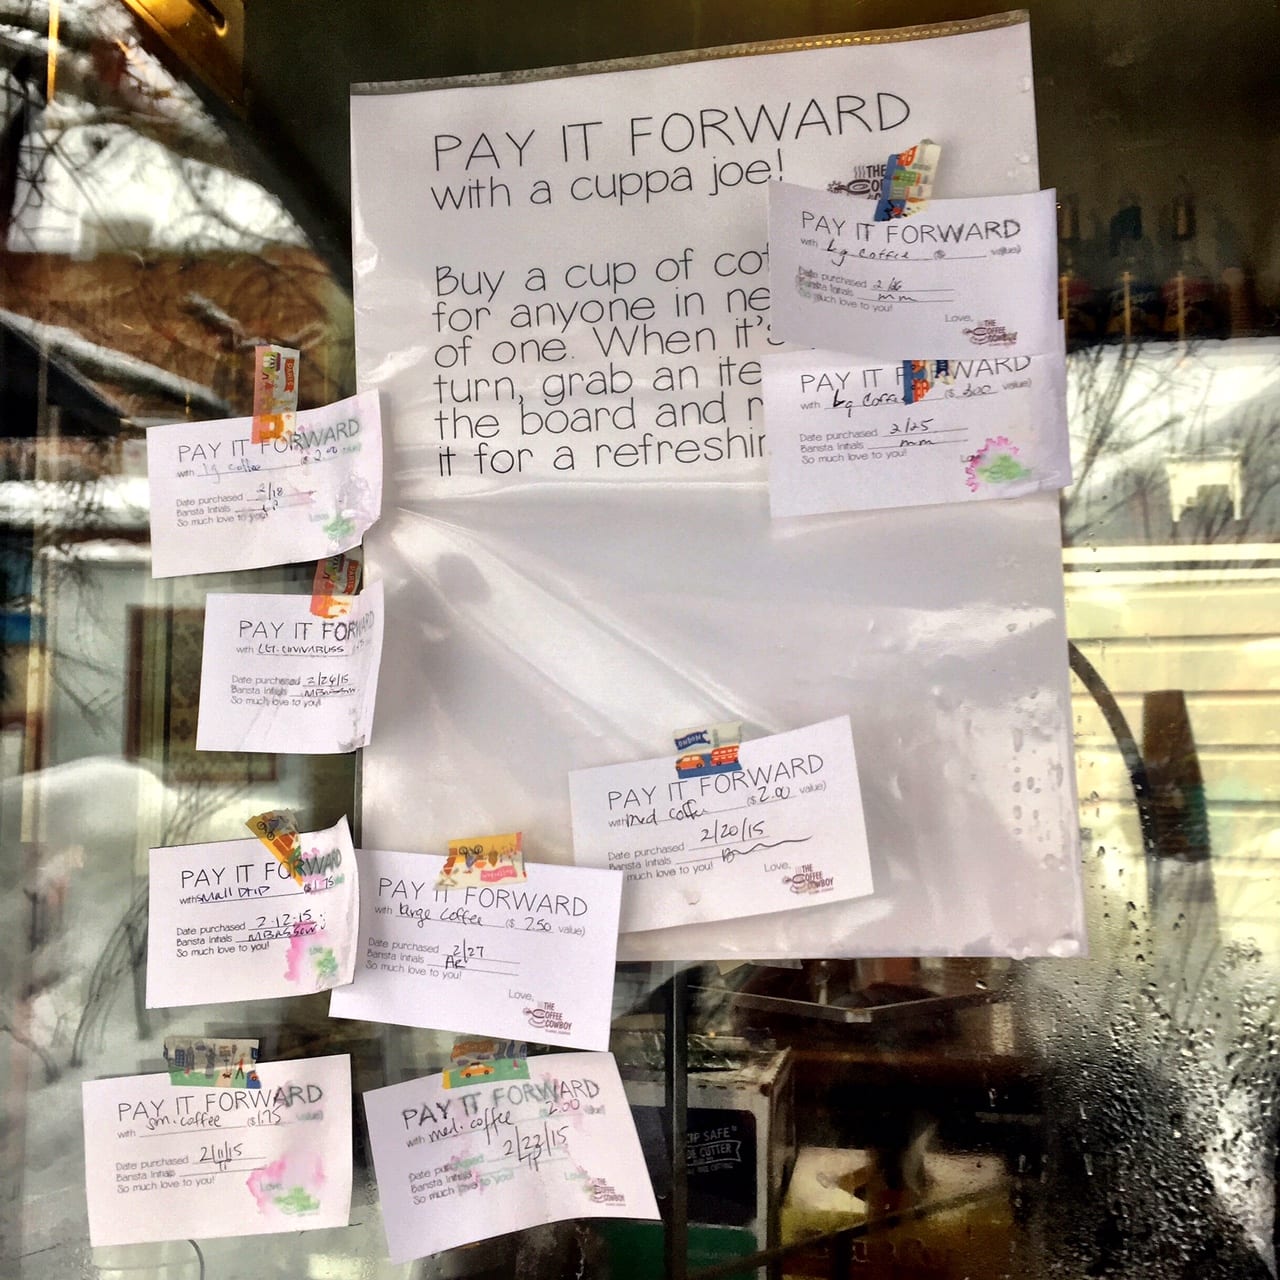 PAY IT FORWARD
with a cuppa joe!
THE
Buy a cup of
for anyone in
of one. When it's
turn, grab an
the board and
it for a
PAY IT FORWARD
with Lg coffee ($ value)
Date purchased 2/26
Barista Initials mm
So much love to you!
Love,
THE
COFFEE
COWBOY
PAY IT FORWARD
with Lg Coffee ($ value)
Date purchased 2/25
Barista Initials mm
So much love to you!
PAY IT FORWARD
with lg coffee ($ 2.00 value)
Date purchased 2/18
Barista Initials
So much love to you!
Love
PAY IT FORWARD
with
Date purchased 2/24/15
Barista Initials
So much love to you!
LONDON
PAY IT FORWARD
with med coffee ($ 2.00 value)
Date purchased 2/20/15
Barista Initials
much love to you!
Love,
THE
COFFEE
COWBOY
PAY IT FORWARD
with small Drip $1.75
Date purchased 2.12.15
Barista Initials MBASSOW
So much love to you!
PAY IT FORWARD
with large coffee ($ 2.50 value)
Date purchased 2/27
Barista Initials AR
So much love to you!
Love,
THE
COFFEE
COWBOY
PAY IT FORWARD
with sm. coffee ($1.75 value)
Date purchased 2/11/15
Barista Initials
So much love to you!
Love,
PAY IT FORWARD
with med. coffee 2.00 value)
Date purchased 2/23/15
Barista Initials
So much love to you!
Love
THE
COFFEE
COWBOY
SAFE
CUTTER